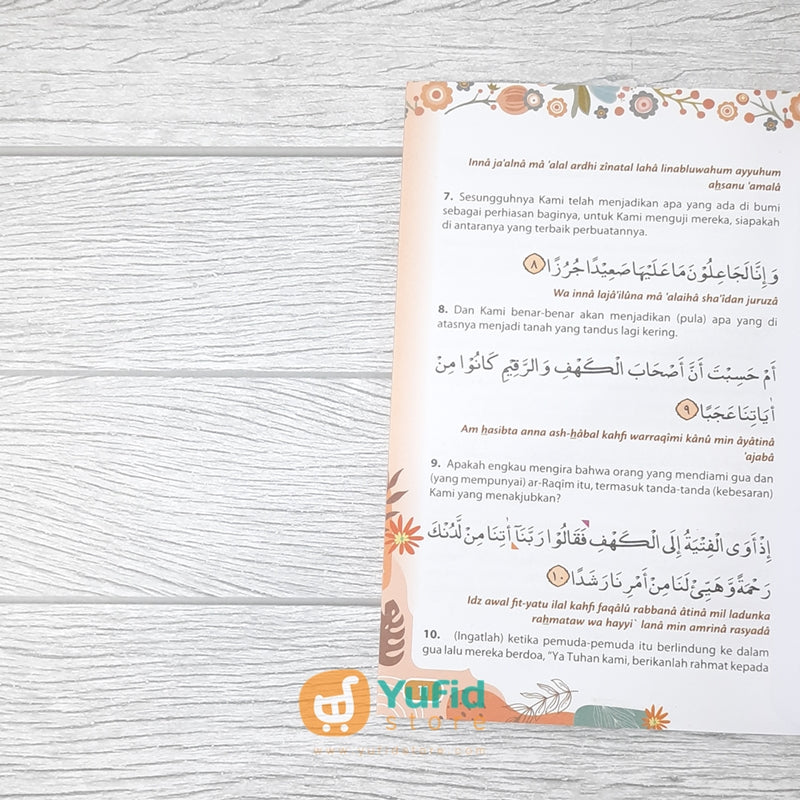 Innâ ja'alnâ mâ 'alal ardhi zînatal lahâ linabluwahum ayyuhum
aẖsanu 'amalâ
7. Sesungguhnya Kami telah menjadikan apa yang ada di bumi
sebagai perhiasan baginya, untuk Kami menguji mereka, siapakah
di antaranya yang terbaik perbuatannya.
وَإِنَّا لَجَاعِلُوْنَ مَا عَلَيْهَا صَعِيْدًا جُرُزًا ٨
Wa innâ lajâ'ilûna mâ 'alaihâ sha'îdan juruzâ
8. Dan Kami benar-benar akan menjadikan (pula) apa yang di
atasnya menjadi tanah yang tandus lagi kering.
أَمْ حَسِبْتَ أَنَّ أَصْحَابَ الْكَهْفِ وَالرَّقِيْمِ كَانُوْا مِنْ
أٰيَاتِنَا عَجَبًا ٩
Am ẖasibta anna ash-ẖâbal kahfi warraqîmi kânû min âyâtinâ
'ajabâ
9. Apakah engkau mengira bahwa orang yang mendiami gua dan
(yang mempunyai) ar-Raqîm itu, termasuk tanda-tanda (kebesaran)
Kami yang menakjubkan?
إِذْ أَوَى الْفِتْيَةُ إِلَى الْكَهْفِ فَقَالُوْا رَبَّنَآ أٰتِنَا مِنْ لَّدُنْكَ
رَحْمَةً وَّهَيِّئْ لَنَا مِنْ أَمْرِنَا رَشَدًا ١٠
Idz awal fit-yatu ilal kahfi faqâlû rabbanâ âtinâ mil ladunka
raẖmataw wa hayyi` lanâ min amrinâ rasyadâ
10. (Ingatlah) ketika pemuda-pemuda itu berlindung ke dalam
gua lalu mereka berdoa, "Ya Tuhan kami, berikanlah rahmat kepada
Yufid
store